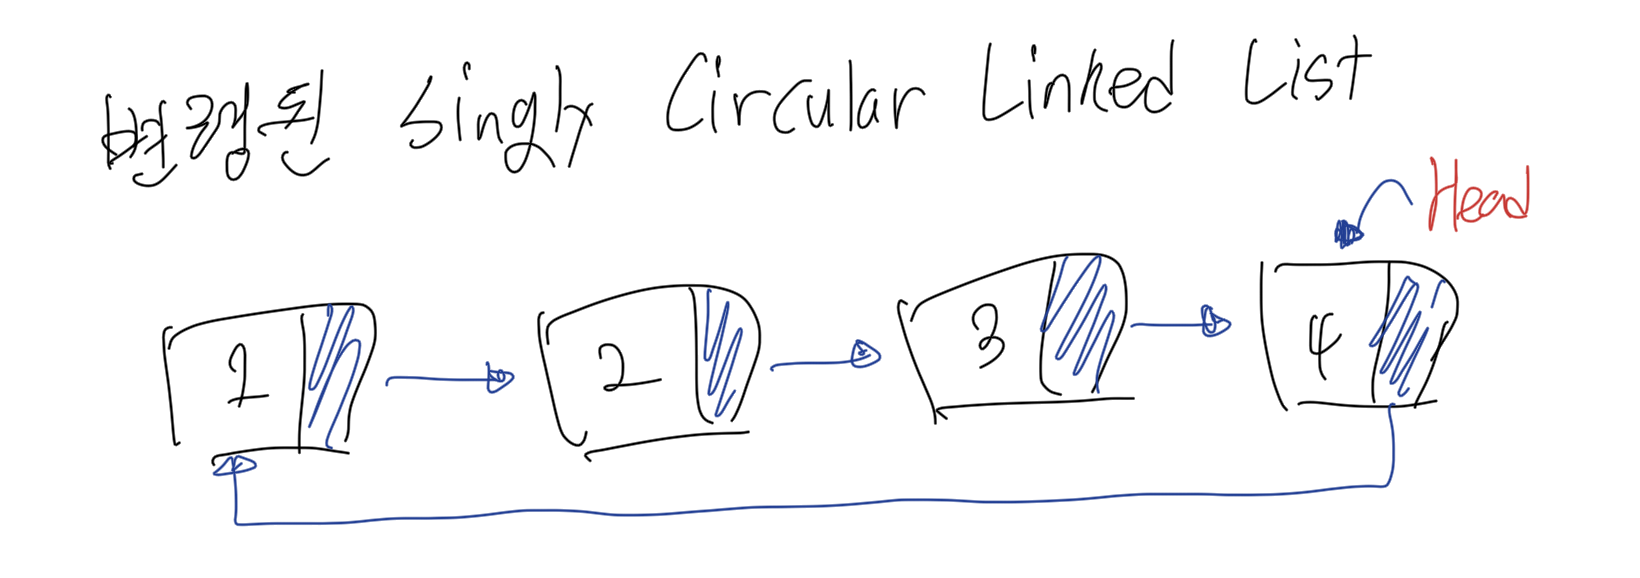 변형된 Singly Circular Linked List
Head
1 2 3 4